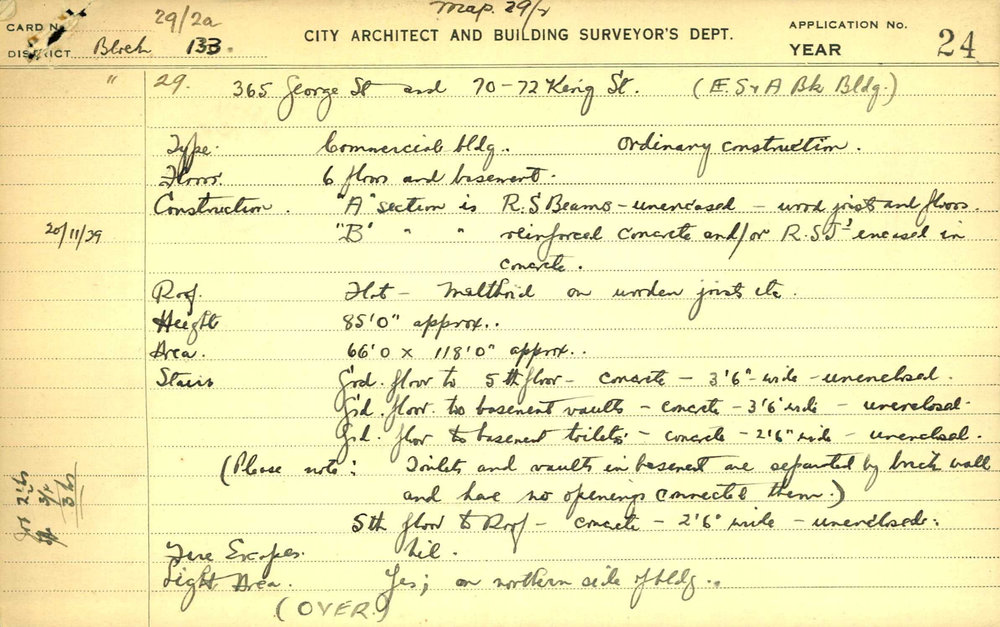 29/2a
Map. 29/2
CARD No.
CITY ARCHITECT AND BUILDING SURVEYOR'S DEPT.
APPLICATION No.
DISTRICT Block 133.
YEAR
24
" 29. 365 George St and 70-72 King St. (E.S & A Bk Bldg.)
Type. Commercial bldg. Ordinary construction.
Floors. 6 floors and basement.
Construction. "A" section is R.S Beams - unencased - wood joists and floors.
20/11/39 "B" " " reinforced concrete and/or R.S.J's encased in
concrete.
Roof. Flat - Malthoid on wooden joists etc.
Height 85'0" approx..
Area. 66'0 x 118'0" approx..
Stairs Grd. floor to 5th floor - concrete - 3'6" wide - unenclosed.
Grd. floor to basement vaults - concrete - 3'6 wide - unenclosed.
Gd. floor to basement toilets - concrete - 2'6" wide - unenclosed.
(Please note: Toilets and vaults in basement are separated by brick wall
and have no openings connected them.)
5th floor to Roof - concrete - 2'6" wide - unenclosed.
Fire Escapes. Nil.
Light Area. Yes; on northern side of bldg..
(OVER.)
2 hrs
3 hrs